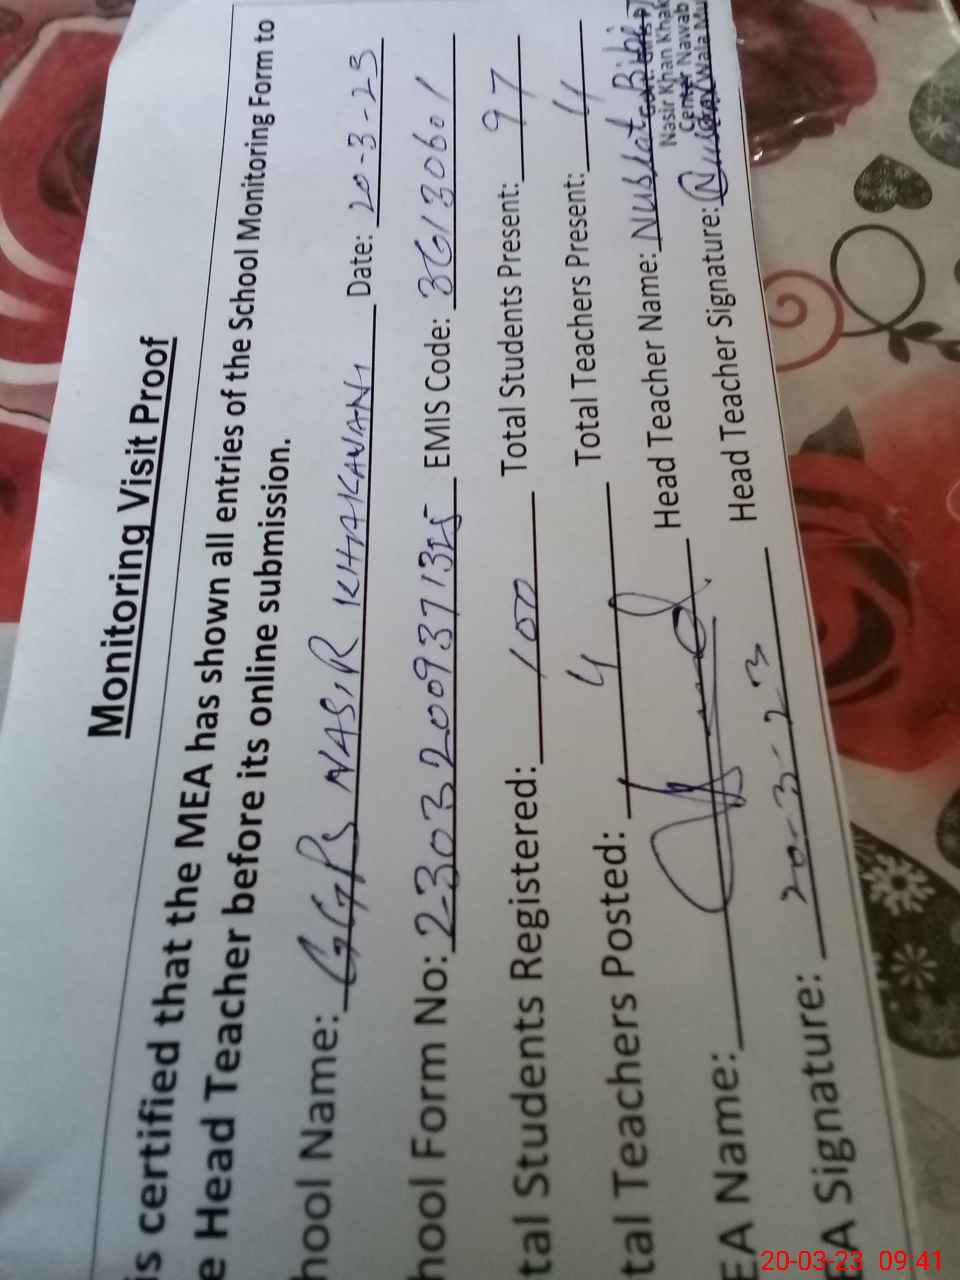 Monitoring Visit Proof
is certified that the MEA has shown all entries of the School Monitoring Form to
e Head Teacher before its online submission.
hool Name: GGPS NASIR KHAKANANI Date: 20-3-23
hool Form No: 2303200937135 EMIS Code: 36130601
tal Students Registered: 100 Total Students Present: 97
tal Teachers Posted: 4 Total Teachers Present: 4
EA Name: Head Teacher Name: Nusrat Bibi
A Signature: 20-3-23 Head Teacher Signature:
Nasir Khan Khak
Center Nawab
Wala Mu
20-03-23 09:41